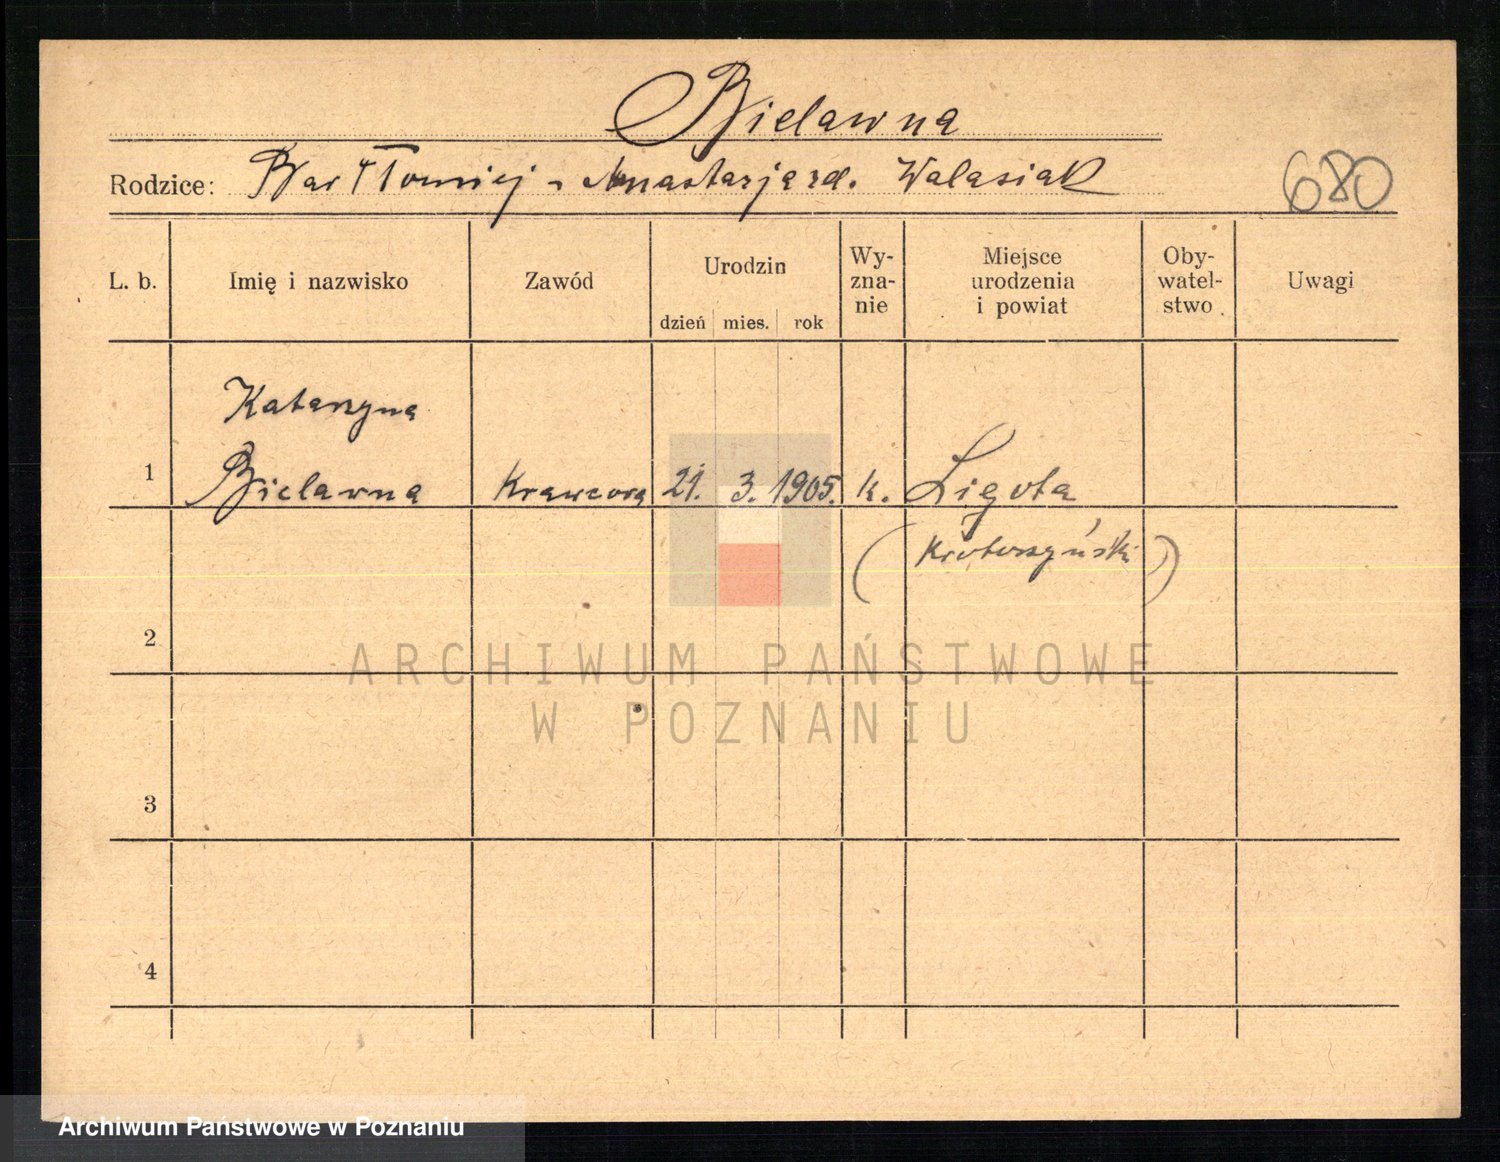 Bielawna
Rodzice: Bartłomiej - Anastazja rd. Walasiak
680
L. b. Imię i nazwisko Zawód Urodzin dzień mies. rok Wy-zna-nie Miejsce urodzenia i powiat Oby-watel-stwo Uwagi
Katarzyna
1 Bielawna Krawcowa 21. 3. 1905. k. Ligota
(Krotoszyński)
2
ARCHIWUM PAŃSTWOWE
W POZNANIU
3
4
Archiwum Państwowe w Poznaniu